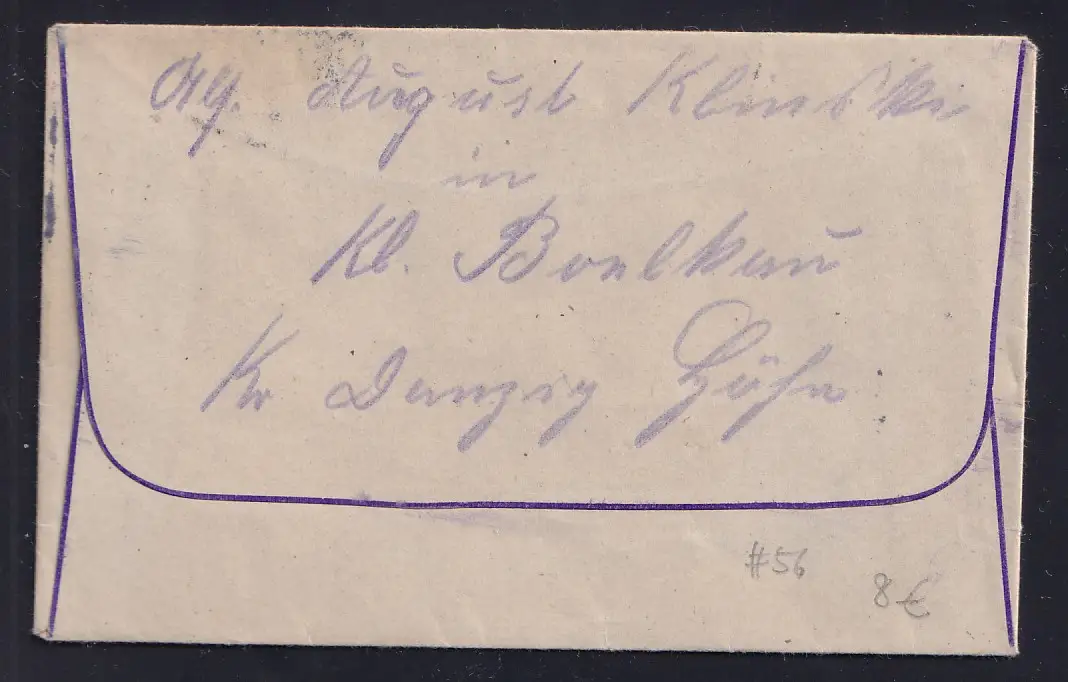 Abs. August Klinski
in
Kl. Boelkau
Kr Danzig Höhe
#56
8€